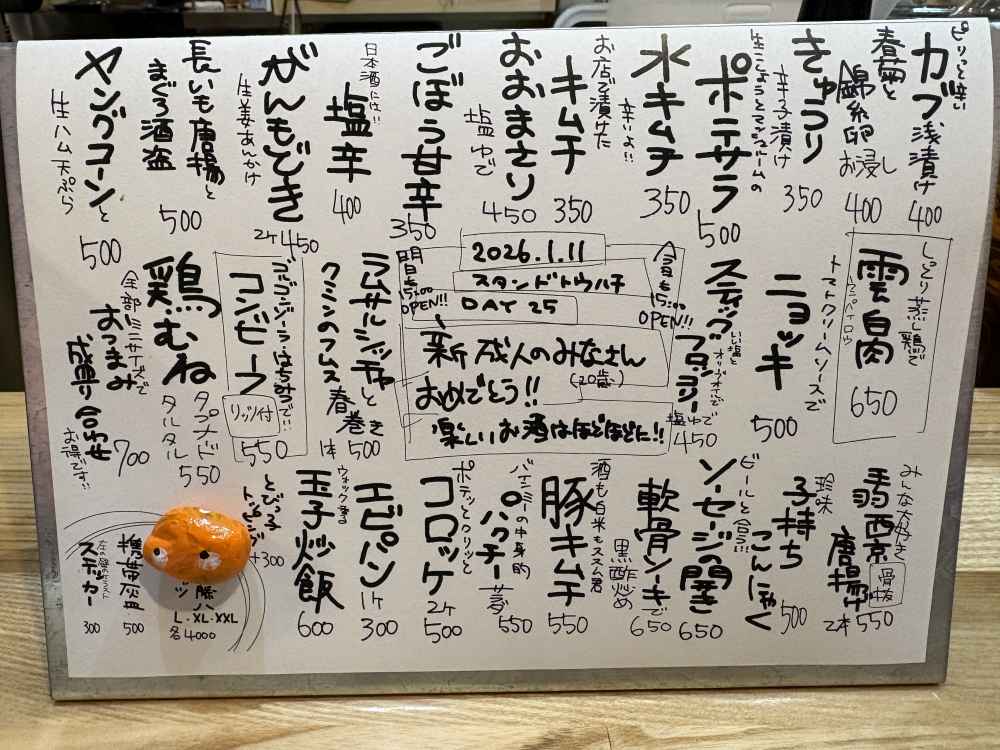 ピリッと辛い
カブ浅漬け
400
春菊と
錦糸卵
お浸し
400
きゅうり
辛子漬け
350
生こしょうとマッシュルームの
ポテサラ
500
水キムチ
辛いよ!!
350
お店で漬けた
キムチ
350
おおまさり
塩ゆで
450
ごぼう甘辛
350
日本酒には!!
塩辛
400
がんもどき
生姜あんかけ
2ケ 450
長いも唐揚と
まぐろ酒盗
500
ヤングコーンと
生ハム天ぷら
500
しっとり蒸し鶏で
雲白肉
ウンパイロウ
650
ニョッキ
トマトクリームソースで
500
スティック
ブロッコリー
いい塩と
オリーブオイルで
塩ゆで
450
今日も
15:00
OPEN!!
2026.1.11
スタンドトウハチ
DAY 25
明日も
15:00
OPEN!!
新成人のみなさん
(20歳)
おめでとう!!
楽しいお酒はほどほどに!!
ラムサルシッチャと
クミンのフムス
春巻き
1本 500
ゴルゴンゾーラ・はちみつで!!
コンビーフ
リッツ付
550
鶏むね
タプナード
タルタル
550
全部ミニサイズで
おつまみ
盛り合わせ
お得です!!
700
みんな大好き
手羽西京
唐揚
骨抜
2本 550
珍味
子持ち
こんにゃく
500
ビールと合う!!
ソーセージの開き
650
軟骨ソーキで
黒酢炒め
650
酒も白米もススム君
豚キムチ
550
バインミーの中身的
パクチー
550
ポテッとクリッと
コロッケ
2ケ
500
エビパン
1ケ
300
ウォック振る
玉子炒飯
600
とびっ子
トッピング
+300
L・XL・XXL
各4000
携帯灰皿
500
左の壁のイラスト
ステッカー
300